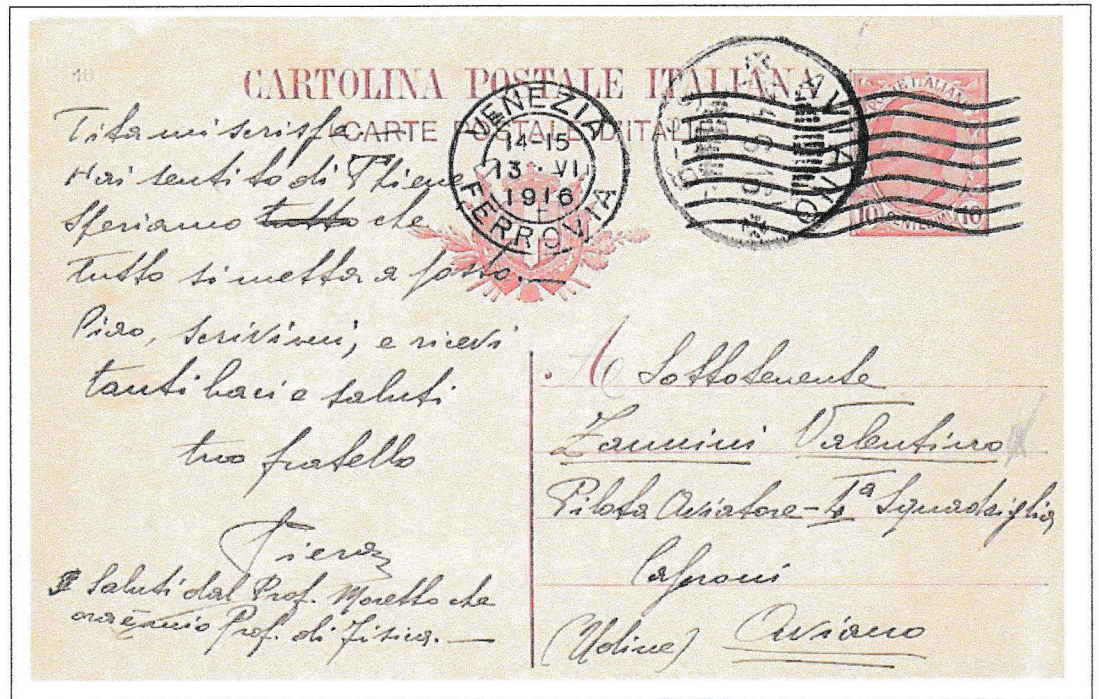 18
CARTOLINA POSTALE ITALIANA
CARTE POSTALE D'ITALIE
VENEZIA
14-15
13 · VI
1916
FERROVIA
AVIANO
POSTE ITALIANE
10 10
Tita mi scrisse.—
Hai sentito di Thiene
Speriamo tutto che
tutto si metta a posto.—
Ciao, scrivimi, e ricevi
tanti baci e saluti
tuo fratello
Piero
Saluti dal Prof. Moretto che
ora è mio Prof. di fisica.—
A Sottotenente
Zannini Valentino
Pilota Aviatore - Iª Squadriglia
Caproni
(Udine) Aviano